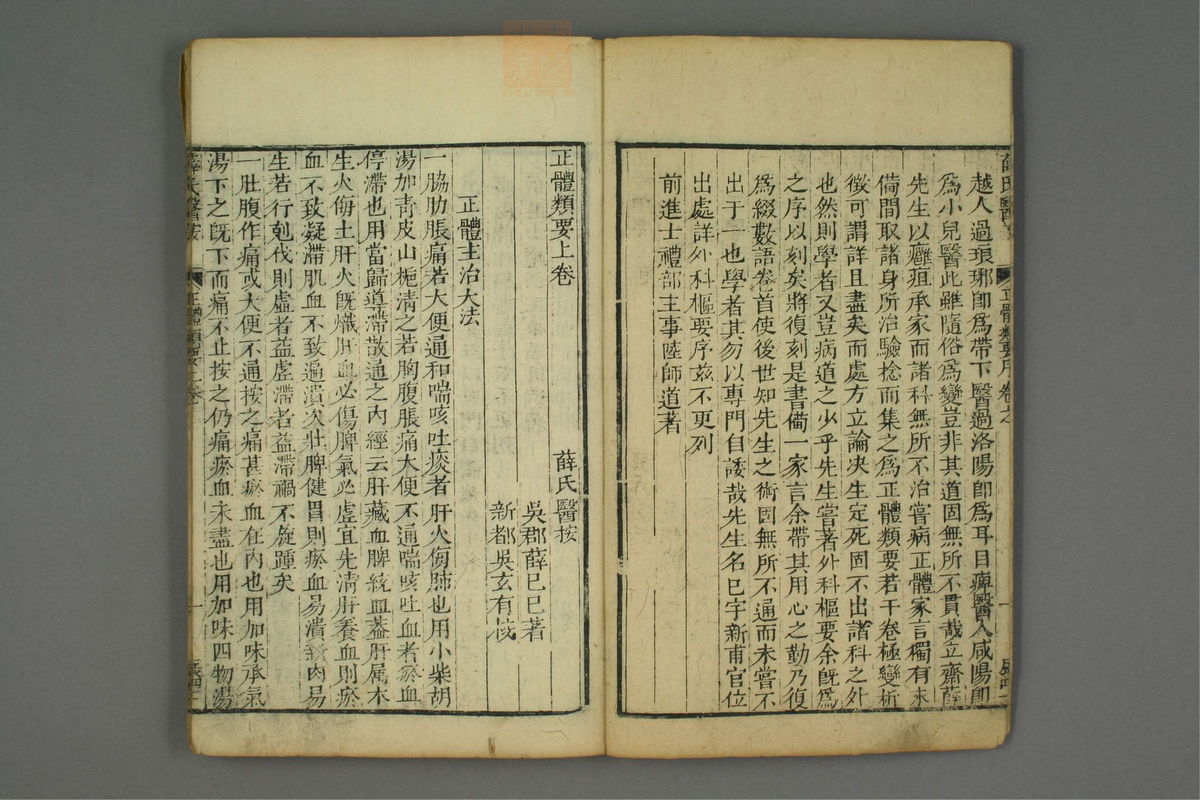 越人過琅琊卽爲帶下醫過洛陽卽爲耳目痺醫入咸陽卽
爲小兒醫此雖隨俗爲變豈非其道固無所不貫哉立齋薛
先生以癰疽承家而諸科無所不治嘗病正體家言獨有未
備間取諸身所治驗捴而集之爲正體類要若干卷極變析
微可謂詳且盡矣而處方立論决生定死固不出諸科之外
也然則學者又豈病道之少乎先生嘗著外科樞要余旣爲
之序以刻矣將復刻是書備一家言余帶其用心之勤乃復
爲綴數語卷首使後世知先生之術固無所不通而未嘗不
出于一也學者其勿以專門自諉哉先生名已字新甫官位
出處詳外科樞要序玆不更列
前進士禮部主事陸師道著
薛氏醫按
正體類要序
正體類要上卷
薛氏醫按
吳郡薛已已著
新都吳玄有校
正體主治大法
一脇肋脹痛若大便通和喘咳吐痰者肝火侮肺也用小柴胡
湯加靑皮山梔淸之若胸腹脹痛大便不通喘咳吐血者瘀血
停滯也用當歸導滯散通之內經云肝藏血脾統血葢肝属木
生火侮土肝火旣熾肝血必傷脾氣必虛宜先淸肝養血則瘀
血不致凝滯肌血不致遍潰次壯脾健胃則瘀血易潰新肉易
生若行剋伐則虛者益虛滯者益滯禍不旋踵矣
一肚腹作痛或大便不通按之痛甚瘀血在內也用加味承氣
湯下之旣下而痛不止按之仍痛瘀血未盡也用加味四物湯
薛氏醫按
正體類要上卷
一